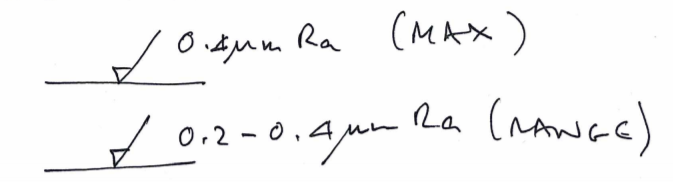 0.4μm Ra (MAX)
0.2-0.4μm Ra (RANGE)